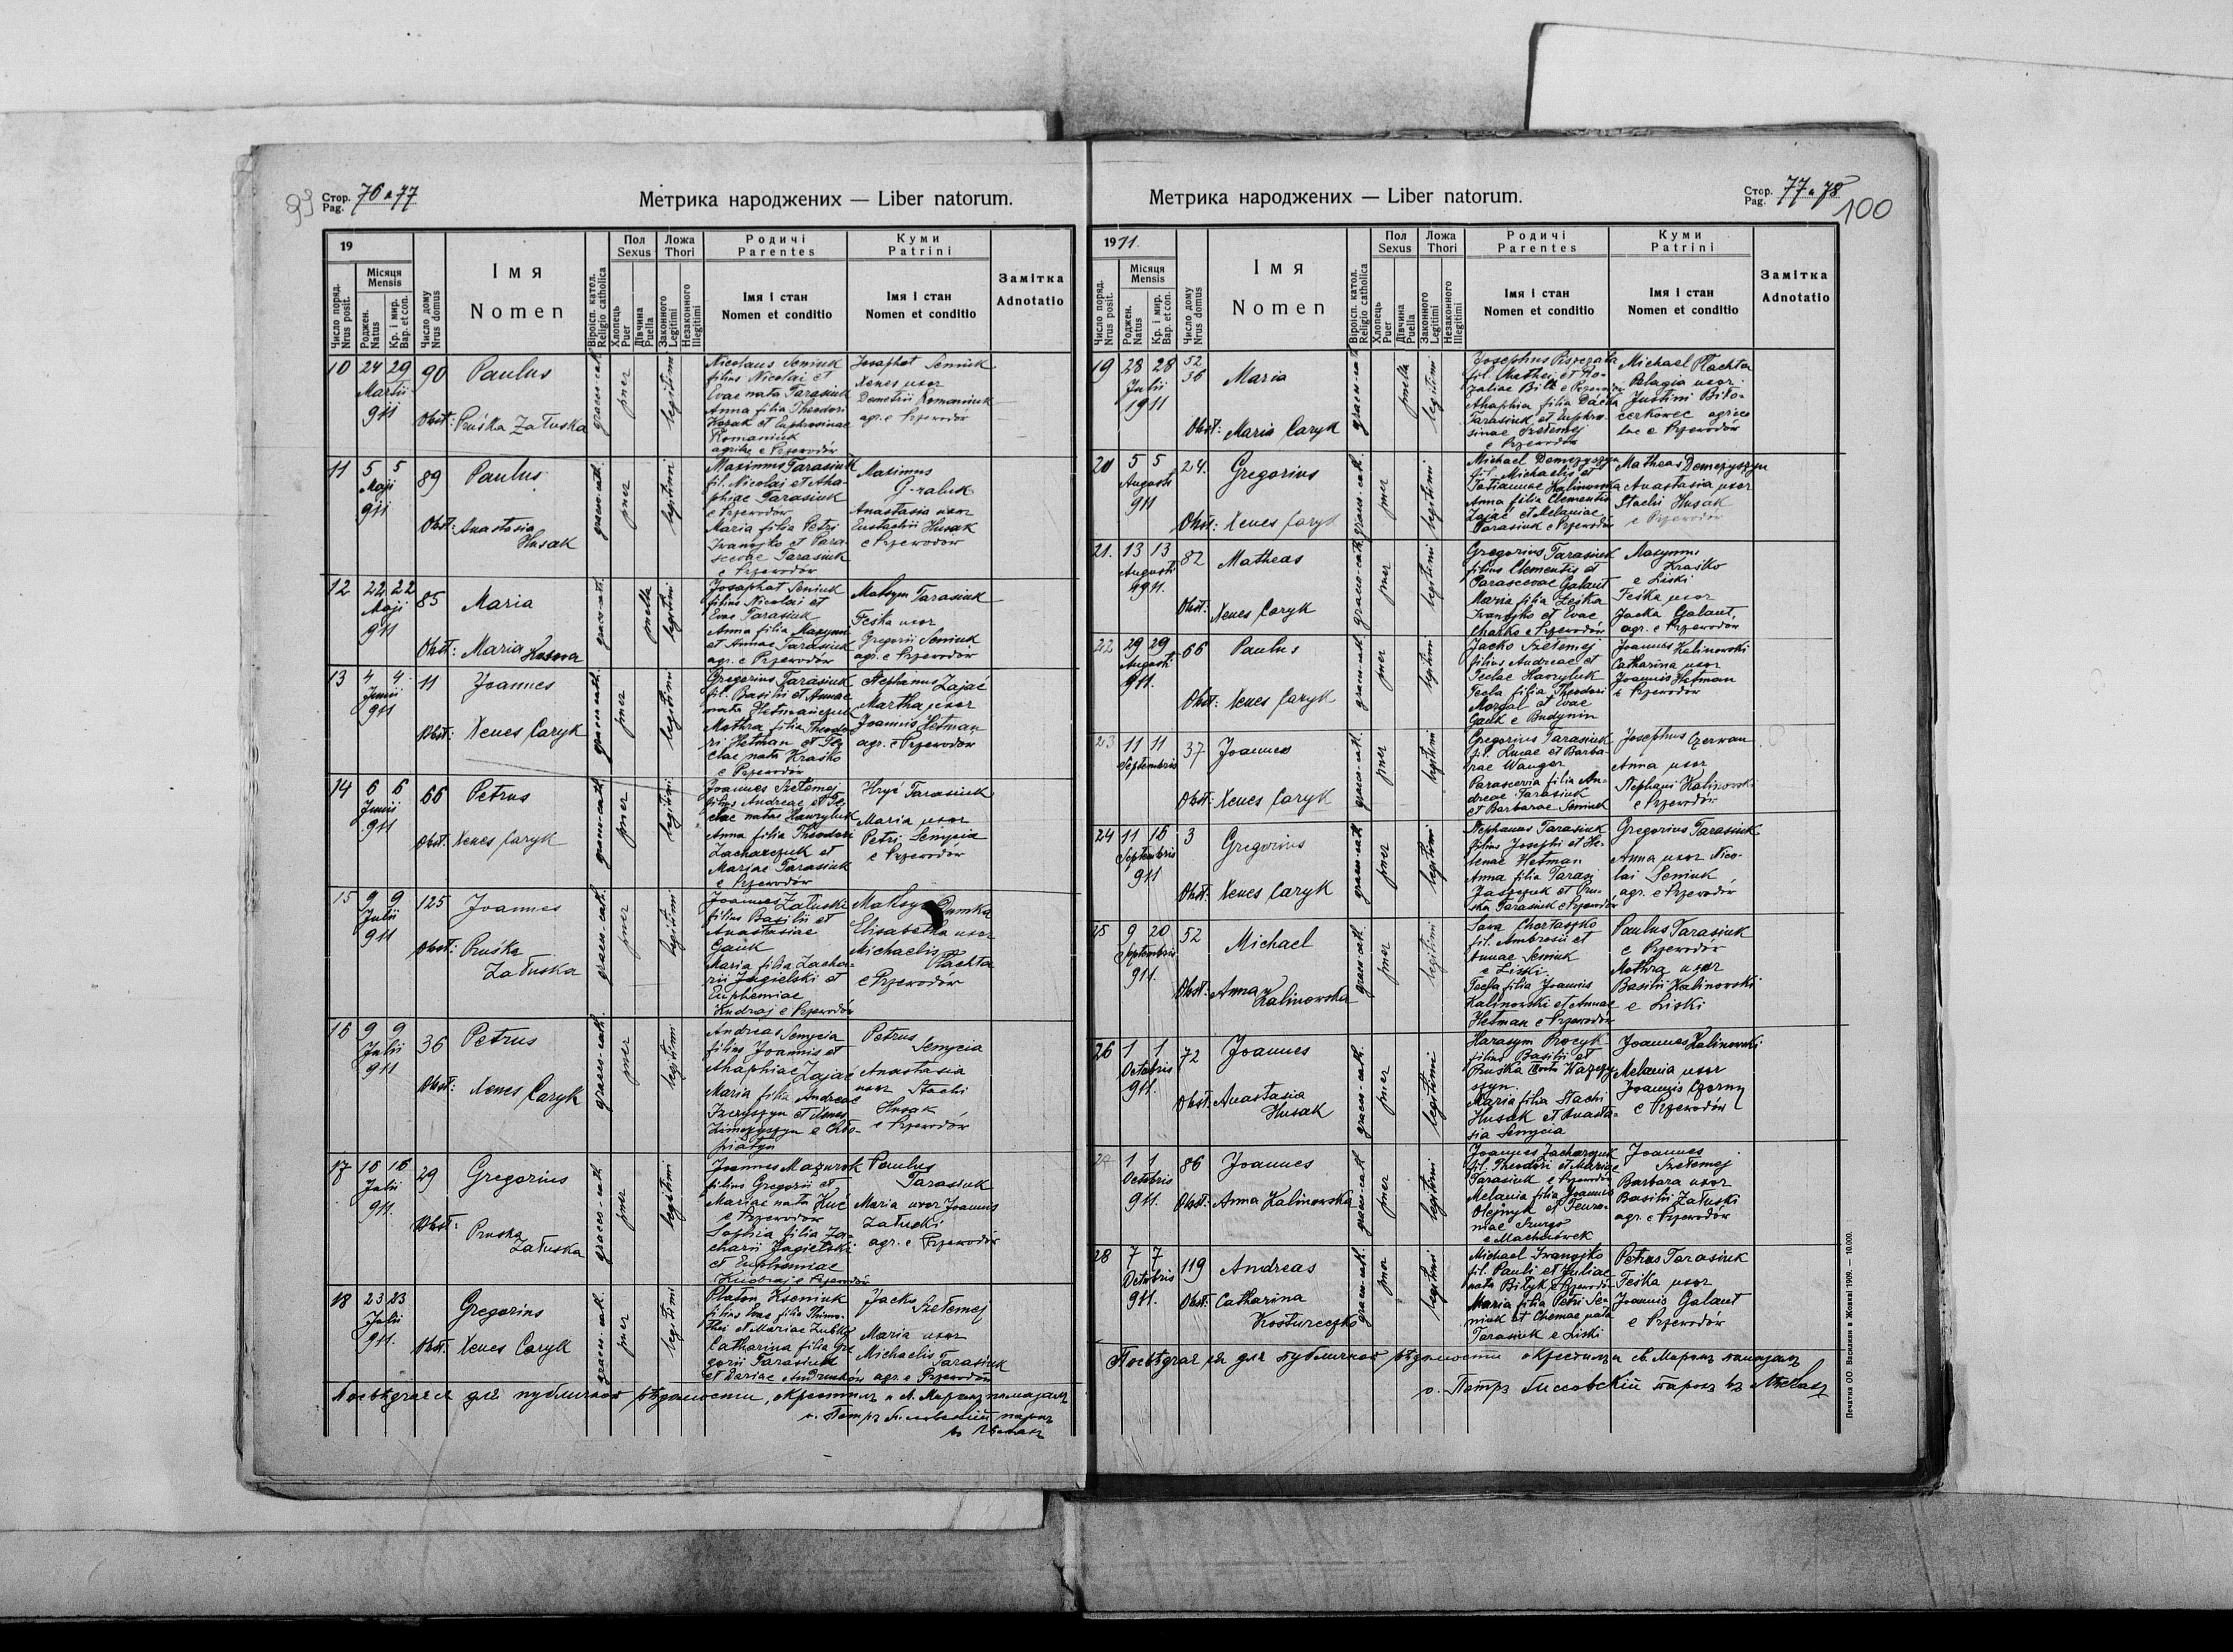 99
Стор. Pag. 76 a 77
Метрика народжених — Liber natorum.
19
Число поряд. Nrus posit.
Місяця Mensis
Роджен. Natus
Кр. і мир. Bap. et con.
Число дому Nrus domus
Імя Nomen
Віроісп. катол. Religio catholica
Пол Sexus
Хлопець Puer
Дівчина Puella
Ложа Thori
Законного Legitimi
Незаконного Illegitimi
Родичі Parentes
Імя і стан Nomen et conditio
Куми Patrini
Імя і стан Nomen et conditio
Замітка Adnotatio
10 24 29 Martii 911 90 Paulus
Obst: Pruśka Załuska
graeco-cath. puer legitimi
Nicolaus Seniuk
filius Nicolai et
Evae nata Tarasiuk
Anna filia Theodori
Kozak et Euphrosinae
Romaniuk
agrilae e Przewodów
Josaphat Seniuk
Xenes uxor
Demetrii Romaniuk
agr. e Przewodów
11 5 5 Maji 911 89 Paulus
Obst: Anastasia
Husak
graeco-cath. puer legitimi
Maximus Tarasiuk
fil. Nicolai et Aha-
phiae Tarasiuk
e Przewodów
Maria filia Petri
Iwanojko et Para-
scevae Tarasiuk
e Przewodów
Maximus
Anastasia uxor
Eustachii Husak
e Przewodów
12 22 22 Maji 911 85 Maria
Obst: Maria
graeco-cath. puella legitimi
Josaphat Seniuk
filius Nicolai et
Evae Tarasiuk
Anna filia Maxymi
et Annae Tarasiuk
agr. e Przewodów
Maksym Tarasiuk
Feśka uxor
Gregorii Seniuk
agr. e Przewodów
13 4 4 Junii 911 11 Joannes
Obst: Xenes Caryk
graeco-cath. puer legitimi
Gregorius Tarasiuk
fil. Basilii et Annae
nata Hetmańczuk
Mothra filia Theodo-
ri Hetman et The-
clae nata Kraśko
e Przewodów
Stephanus Zając
Martha uxor
Joannis Hetman
agr. e Przewodów
14 6 6 Junii 911 66 Petrus
Obst. Xenes Caryk
graeco-cath. puer legitimi
Joannes Szełemej
filius Andreae et Te-
clae natae Hawryluk
Anna filia Theodori
Zacharczuk et
Mariae Tarasiuk
e Przewodów
Hryć Tarasiuk
Maria uxor
Petri Senycia
e Przewodów
15 9 9 Julii 911 125 Joannes
Obst: Pruśka
Załuska
graeco-cath. puer legitimi
Joannes Załuski
filius Basilii et
Anastasiae
Gauk
Maria filia Zacha-
rii Jagielski et
Euphemiae
Kudraj e Przewodów
Maksym Dumka
Elisabetha uxor
Michaelis
Płachta
e Przewodów
16 9 9 Julii 911 36 Petrus
Obst: Xenes Caryk
graeco-cath. puer legitimi
Andreas Senycia
filius Joannis et
Ahaphiae Zając
Maria filia Andreae
et Xenes
e Chło-
piatyn
Petrus
Senycia
Anastasia
uxor Stachi
Husak
e Przewodów
17 16 16 Julii 911. 29 Gregorius
Obst: Pruska
Załuska
graeco-cath. puer legitimi
Joannes Mazurok
filius Gregorii et
Mariae nata Kuć
e Przewodów
Sophia filia Za-
charii Jagielski
et Euphemiae
Kudraj e Przewodów
Paulus
Tarasiuk
Maria uxor Joannis
Załuski
agr. e Przewodów
18 23 23 Julii 911. Gregorius
Obst. Xenes Caryk
graeco-cath. puer legitimi
Platon Kseniuk
filius Evae filia Thimo-
thei et Mariae Zubko
Catharina filia Gre-
gorii Tarasiuk
et Dariae Andruchów
Jacko
Szełemej
Maria uxor
Michaelis Tarasiuk
agr. e Przewodów
для публичной вѣдомости, окрестилъ и св. Мѵромъ помазалъ
о. Петръ парохъ
100
Метрика народжених — Liber natorum.
Стор. Pag. 77 a 78
1911.
Число поряд. Nrus posit.
Місяця Mensis
Роджен. Natus
Кр. і мир. Bap. et con.
Число дому Nrus domus
Імя Nomen
Віроісп. катол. Religio catholica
Пол Sexus
Хлопець Puer
Дівчина Puella
Ложа Thori
Законного Legitimi
Незаконного Illegitimi
Родичі Parentes
Імя і стан Nomen et conditio
Куми Patrini
Імя і стан Nomen et conditio
Замітка Adnotatio
19 28 28 Julii 1911 52 36 Maria
Obst: Maria Caryk
graeco-cat puella legitimi
Josephus
fil. Mathei et Ro-
zaliae e Przewodów
Ahaphia filia
Tarasiuk et Euphro-
sinae Szełemej
e Przewodów
Michael Płachta
Pelagia uxor
Justini Biło-
cerkowec agrico
lae e Przewodów
20 5 5 Augusti 911 24. Gregorius
Obst: Xenes Caryk
graeco-cath. puer legitimi
Michael Demczyszyn
fil. Michaelis et
Tatiannae Kalinowska
Anna filia Clementis
Zając et Melaniae
Tarasiuk e Przewodów
Matheas Demczyszyn
Anastasia uxor
Stachi Husak
e Przewodów
21. 13 13 Augusti 1911. 82 Matheas
Obst: Xenes Caryk
graeco-cath. puer legitimi
Gregorius Tarasiuk
filius Clementis et
Parascevae Galant
Maria filia Leśka
Iwanojko et Evae
Charko e Przewodów
Maxymus
Kraśko
e Liski
Feśka uxor
Jacka Galant,
agr. e Przewodów
22 29 29 Augusti 911. 66 Paulus
Obst: Xenes Caryk
graeco-cath. puer legitimi
Jacko Szełemej
filius Andreae et
Teclae Hawryluk
Tecla filia Theodori
Morgal et Evae
Gauk e Budynin
Joannes Kalinowski
Catharina uxor
Joannis Hetman
e Przewodów
23 11 11 Septembris 37 Joannes
Obst: Xenes Caryk
graeco-cath. puer legitimi
Gregorius Tarasiuk
fil. Lucae et Barba-
rae Wanger
Parascevia filia An-
dreae Tarasiuk
et Barbarae Seniuk
Josephus Czerwan
Anna uxor
Stephani Kalinowski
e Przewodów
24 11 16 Septembris 911 3 Gregorius
Obst: Xenes Caryk
graeco-cath puer legitimi
Stephanus Tarasiuk
filius Josephi et He-
lenae Hetman
Anna filia Tarasi
Jaszczuk et Pru-
ska Tarasiuk e Przewodów
Gregorius Tarasiuk
Anna uxor Nico-
lai Seniuk
agr. e Przewodów
25 9 20 Septembris 911. 52 Michael
Obst: Anna Kalinowska
graeco-cath. puer legitimi
Sava Chortaszko
fil. Ambrosii et
Annae Seniuk
e Liski
Tecla filia Joannis
Kalinowski et Annae
Hetman e Przewodów
Paulus Tarasiuk
e Przewodów
Mothra uxor
Basilii Kalinowski
e Liski
26 1 1 Octobris 911. 72 Joannes
Obst: Anastasia
Husak
graeco-cath. puer legitimi
Harasym Procyk
filius Basilii et
Pruska
szyn.
Maria filia Stachi
Husak et Anasta-
sia Senycia
Joannes Kalinowski
Melania uxor
Joannis Czorny
e Przewodów
27 1 1 Octobris 911. 86 Joannes
Obst: Anna Kalinowska
graeco-cath puer legitimi
Joannes Zacharczuk
fil. Theodori et Mariae
Tarasiuk e Przewodów
Melania filia Joannis
Olejnyk et Fewro-
niae Szurgo
e Machnówek
Joannes
Szełemej
Barbara uxor
Basilii Załuski
agr. e Przewodów
28 7 7 Octobris 911. 119 Andreas
Obst: Catharina
Kostureczko
graeco-cath. puer legitimi
Michael Iwanojko
fil. Pauli et Juliae
nata Bilyk e Przewodów
Maria filia Petri Se-
niuk et Chemae nata
Tarasiuk e Liski
Petrus Tarasiuk
Feśka uxor
Joannis Galant
e Przewodów
для публичной вѣдомости окрестилъ св. Мѵромъ помазалъ
о. Петръ парохъ въ
Печатня ОО. Василиян в Жовкві 1909. — 10.000.